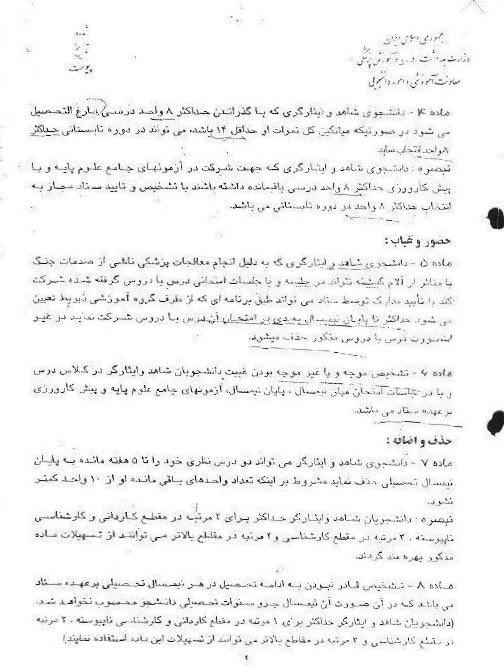 جمهوری اسلامی ایران
وزارت بهداشت، درمان و آموزش پزشکی
معاونت آموزشی و امور دانشجویی
شماره
تاریخ
پیوست
ماده ۴ - دانشجوی شاهد و ایثارگری که با گذراندن حداکثر ۸ واحد درسی فارغ التحصیل
می شود در صورتیکه میانگین کل نمرات او حداقل ۱۴ باشد، می تواند در دوره تابستانی حداکثر
۸ واحد انتخاب نماید
تبصره : دانشجوی شاهد و ایثارگری که جهت شرکت در آزمونهای جامع علوم پایه و یا
پیش کارورزی حداکثر ۸ واحد درسی باقیمانده داشته باشند با تشخیص و تایید ستاد مجاز به
انتخاب حداکثر ۸ واحد در دوره تابستانی می باشد.
حضور و غیاب :
ماده ۵ - دانشجوی شاهد و ایثارگری که به دلیل انجام معالجات پزشکی ناشی از صدمات جنگ
یا متاثر از آلام گذشته نتواند در جلسه و یا جلسات امتحانی درس یا دروس گرفته شده شرکت
کند با تأیید مدارک توسط ستاد می تواند طبق برنامه ای که از طرف گروه آموزشی ذیربط تعیین
می شود حداکثر تا پایان نیمسال بعدی در امتحان آن درس یا دروس شرکت نماید در غیر
اینصورت درس یا دروس مذکور حذف میشود.
ماده ۶ - تشخیص موجه و یا غیر موجه بودن غیبت دانشجویان شاهد وایثارگر در کلاس درس
و یا در جلسات امتحان میان نیمسال ، پایان نیمسال، آزمونهای جامع علوم پایه و پیش کارورزی
برعهده ستاد می باشد.
حذف و اضافه :
ماده ۷ - دانشجوی شاهد و ایثارگر می تواند دو درس نظری خود را تا ۵ هفته مانده به پایان
نیمسال تحصیلی حذف نماید مشروط بر اینکه تعداد واحدهای باقی مانده او از ۱۰ واحد کمتر
نشود.
تبصره : دانشجویان شاهد وایثارگر حداکثر برای ۲ مرتبه در مقطع کاردانی و کارشناسی
ناپیوسته ، ۳ مرتبه در مقطع کارشناسی و ۲ مرتبه در مقاطع بالاتر می توانند از تسهیلات ماده
مذکور بهره مند گردند.
ماده ۸ - تشخیص قادر نبودن به ادامه تحصیل در هر نیمسال تحصیلی برعهده ستاد
می باشد که در آن صورت آن نیمسال جزو سنوات تحصیلی دانشجو محسوب نخواهد شد.
(دانشجویان شاهد و ایثارگر حداکثر برای ۱ مرتبه در مقطع کاردانی و کارشناسی ناپیوسته ، ۲ مرتبه
در مقطع کارشناسی و ۳ مرتبه در مقطع بالاتر می توانند از تسهیلات این ماده استفاده نمایند)
۲